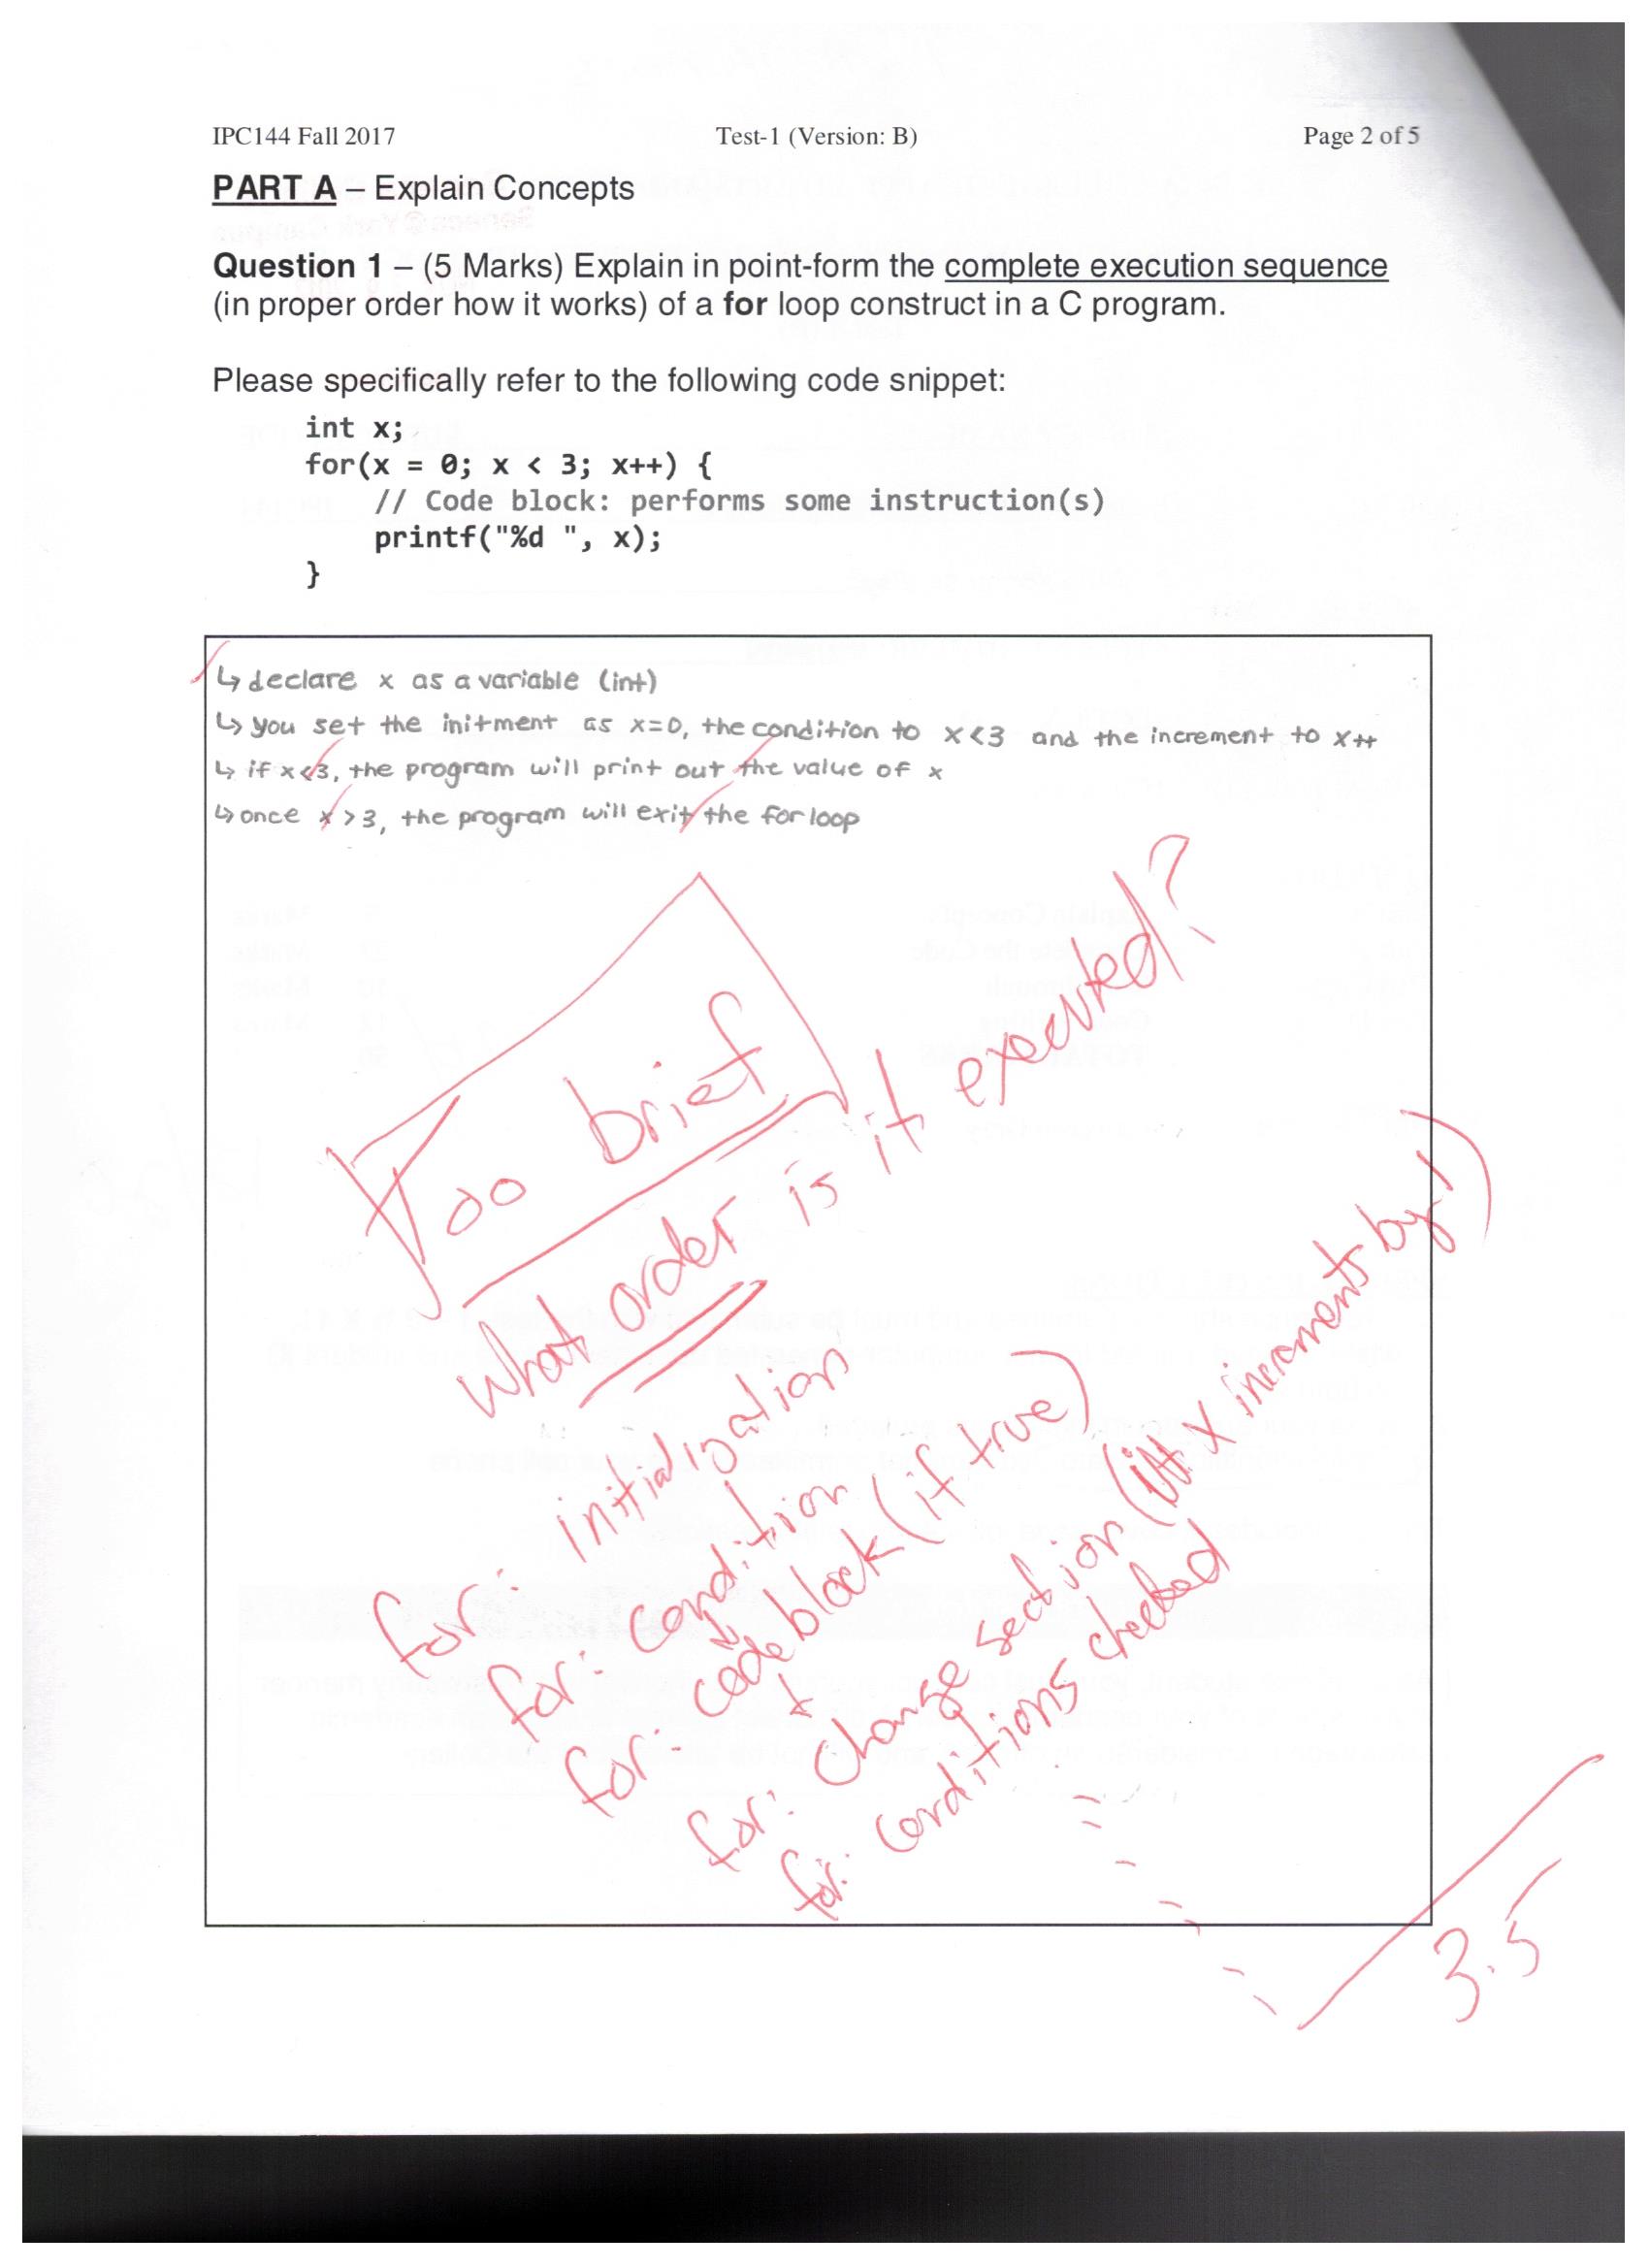 IPC144 Fall 2017 Test-1 (Version: B) Page 2 of 5
PART A – Explain Concepts
Question 1 – (5 Marks) Explain in point-form the complete execution sequence
(in proper order how it works) of a for loop construct in a C program.
Please specifically refer to the following code snippet:
int x;
for(x = 0; x < 3; x++) {
// Code block: performs some instruction(s)
printf("%d ", x);
}
↳ declare x as a variable (int)
↳ you set the initment as x=0, the condition to x<3 and the increment to x++
↳ if x<3, the program will print out the value of x
↳ once x >3, the program will exit the for loop
Too brief
What order is it executed?
for: initialization
for: condition
for: code block (if true)
for: change section (x increments by 1)
for: conditions checked
3.5